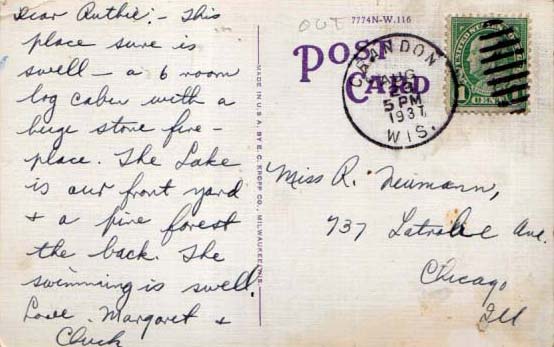 Dear Ruthie: - This
place sure is
swell - a 6 room
log cabin with a
huge stone fire-
place. The Lake
is our front yard
+ a pine forest
the back. The
swimming is swell.
Love. Margaret +
Chuck
MADE IN U.S.A. BY E. C. KROPP CO., MILWAUKEE, WIS.
OUT
7774N-W.116
POST
CARD
CRANDON
AUG
5 PM
1937
WIS.
1 CENT
Miss R. Neumann,
737 Latrobe Ave.
Chicago
Ill